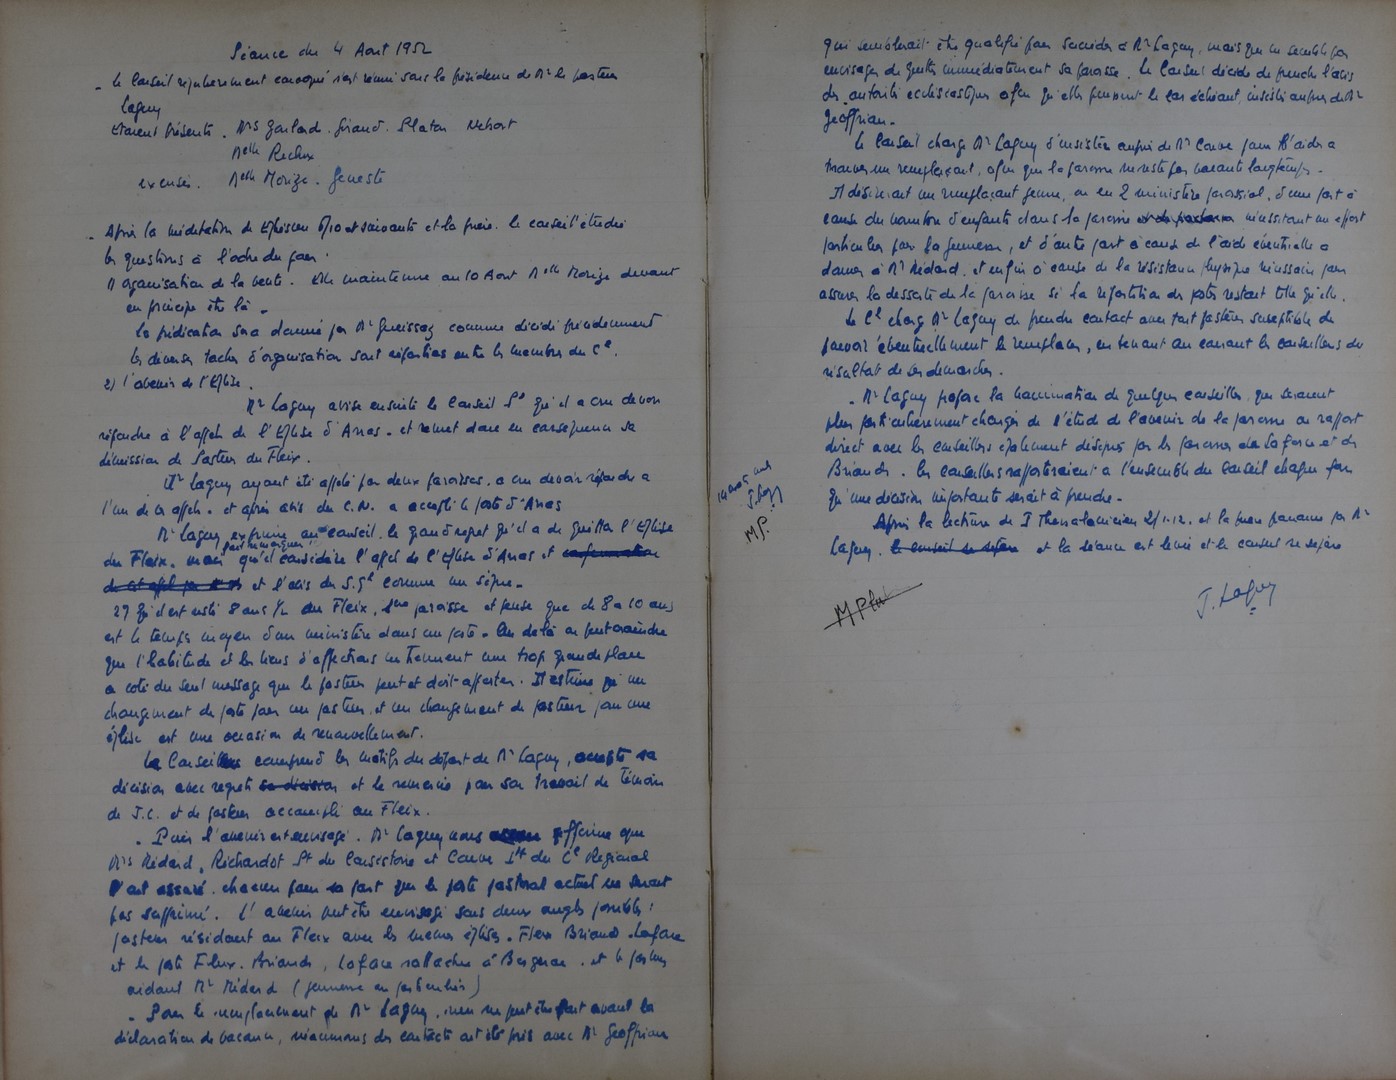 Séance du 4 Aout 1952
- Le Conseil régulièrement convoqué s'est réuni sous la présidence de Mr le pasteur
Laguy
Etaient présents. Mrs Gaillard. Giraud. Platon Nebout
Melle Reclux
excusés. Melle Morize. Geneste
- Après la méditation de Ephésiens 6/10 et suivants et la prière. le conseil étudie
les questions à l'ordre du jour.
1) organisation de la vente. Elle maintenue au 10 Aout Melle Morize devant
en principe être là.
La prédication sera donnée par Mr comme décidé précédemment
les diverses taches d'organisation sont réparties entre les membres du Cl.
2) l'avenir de l'Eglise.
Mr Laguy avise ensuite le Conseil Pl qu'il a cru devoir
répondre à l'appel de l'Eglise d'Arras. et remet donc en conséquence sa
démission de Pasteur du Fleix.
Mr Laguy ayant été appelé par deux paroisses. a cru devoir répondre a
l'un de ces appels. et après avis du C.N. a accepté le poste d'Arras
Mr Laguy exprime au conseil. le grand regret qu'il a de quitter l'Eglise
du Fleix. mais fait remarquer 1° qu'il considère l'appel de l'Eglise d'Arras et
et l'avis du S.Gl comme un signe.
2° qu'il est resté 8 ans 1/2 au Fleix, 1ère paroisse et pense que de 8 a 10 ans
est le temps moyen d'un ministère dans un poste. Au delà on peut craindre
que l'habitude et les liens d'affections ne tiennent une trop grande place
a coté du seul message que le pasteur peut et doit apporter. Il estime qu'un
changement de poste pour un pasteur et un changement de pasteur pour une
église est une occasion de renouvellement.
Le Conseil comprend les motifs du départ de Mr Laguy, accepte sa
décision avec regrets sa décision et le remercie pour son travail de témoin
de J.C. et de pasteur accompli au Fleix.
- Puis l'avenir est envisagé. Mr Laguy nous affirme que
Mrs Médard, Richardot Pt du Consistoire et Couve Pt du Cl Régional
l'ont assuré. chacun pour sa part que le poste pastoral actuel ne serait
pas supprimé. L'avenir peut être envisagé sous deux angles possibles :
pasteur résidant au Fleix avec les mêmes églises. Fleix Briands. Laforce
et le poste Fleix. Briands, Laforce rattachée à Bergerac. et le pasteur
aidant Mr Médard (jeunesse en particulier)
- Pour le remplacement de Mr Laguy. rien ne peut être fait avant la
déclaration de vacance, néanmoins des contacts ont été pris avec Mr Geoffrian
qui semblerait être qualifié pour succéder à Mr Laguy, mais qui ne semble pas
envisager de quitter immédiatement sa paroisse. Le Conseil décide de prendre l'avis
des autorités ecclésiastiques afin qu'elles puissent le cas échéant, insister auprès de Mr
Geoffrian.
Le Conseil charge Mr Laguy d'insister auprès de Mr Couve pour l'aider a
trouver un remplaçant, afin que la paroisse ne reste pas vacante longtemps.
Il désirerait un remplaçant jeune, ou en 2 ministère paroissial, d'une part à
cause du nombre d'enfants dans la paroisse nécessitant un effort
particulier pour la jeunesse, et d'autre part à cause de l'aide éventuelle a
donner à Mr Médard. et enfin à cause de la résistance physique nécessaire pour
assurer la desserte de la paroisse si la répartition des postes restait telle qu'elle.
Le Cl charge Mr Laguy de prendre contact avec tout pasteur susceptible de
pouvoir éventuellement le remplacer, en tenant au courant les conseillers du
résultat de ses démarches.
- Mr Laguy propose la nomination de quelques conseillers, qui seraient
plus particulièrement chargés de l'étude de l'avenir de la paroisse en rapport
direct avec les conseillers également désignés par les paroisses de Laforce et des
Briands. Les conseillers rapporteraient a l'ensemble du conseil chaque fois
qu'une décision importante serait à prendre.
Après la lecture de I Thessaloniciens 2/1-12. et la prière prononcée par Mr
Laguy. le conseil se sépare et la séance est levée et le conseil se sépare
J. Laguy